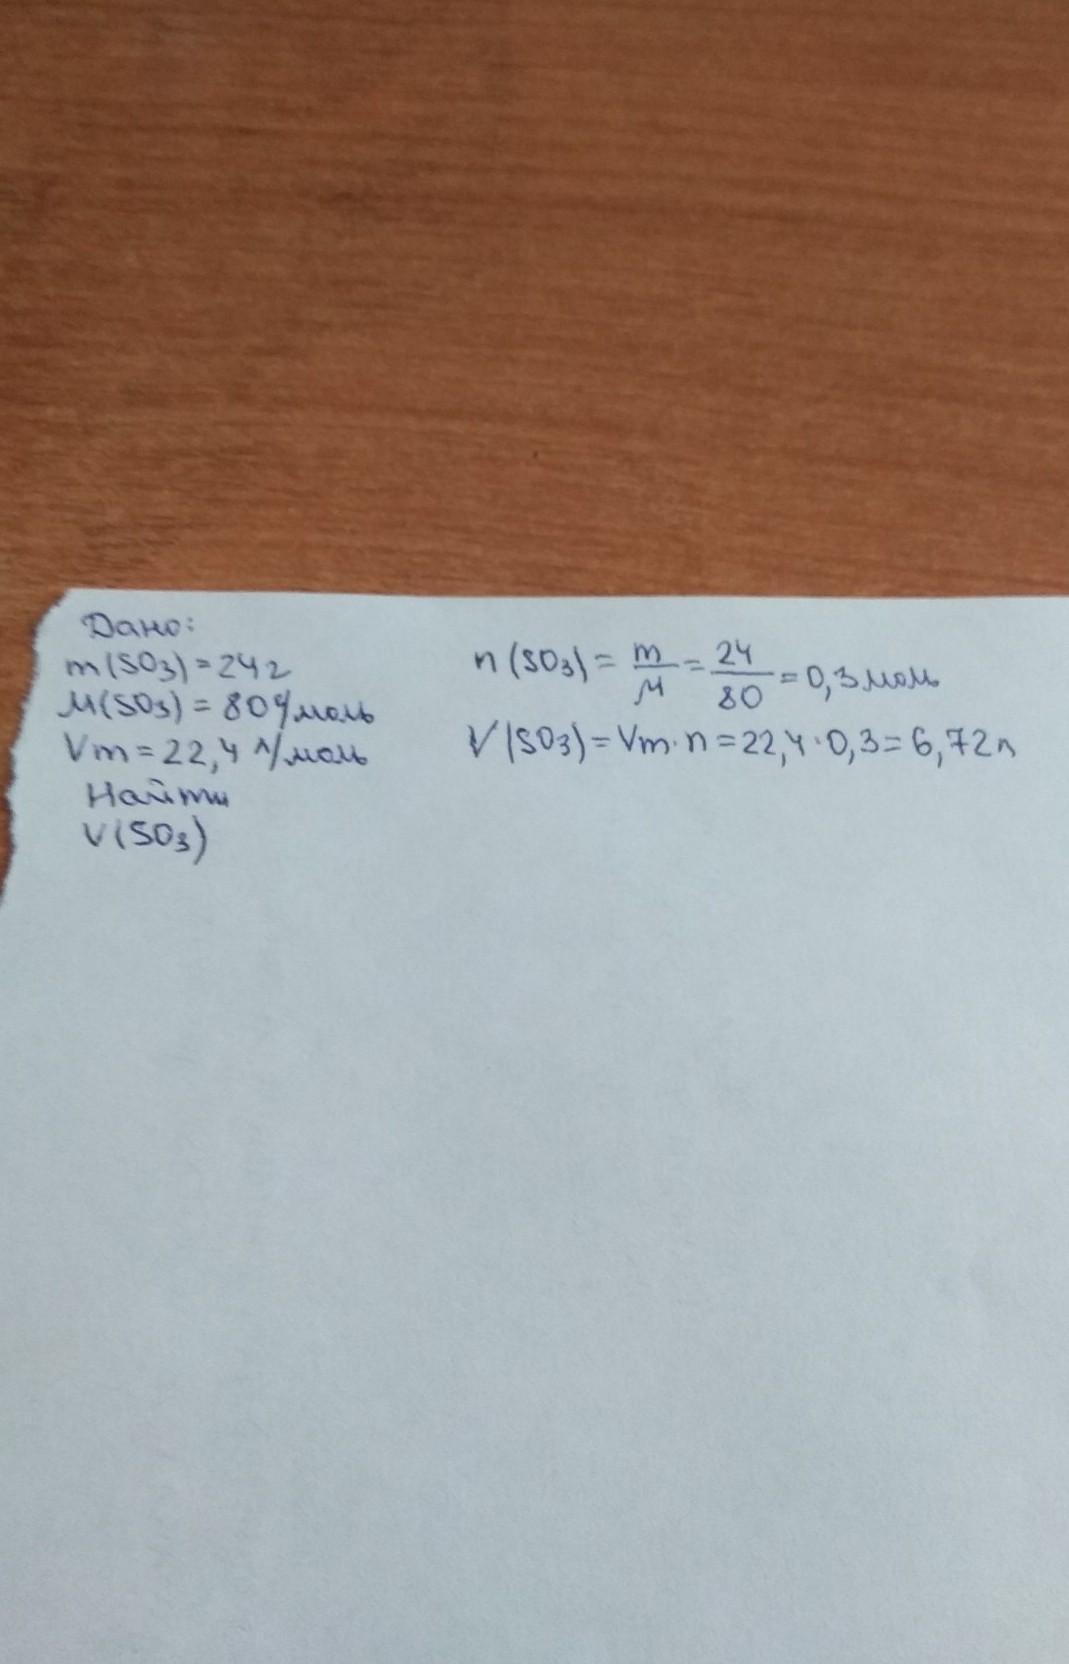 Дано:
m(SO₃)=24г
M(SO₃)=80г/моль
Vm=22,4 л/моль
Найти
V(SO₃)
n(SO₃)=m/M=24/80=0,3моль
V(SO₃)=Vm·n=22,4·0,3=6,72л